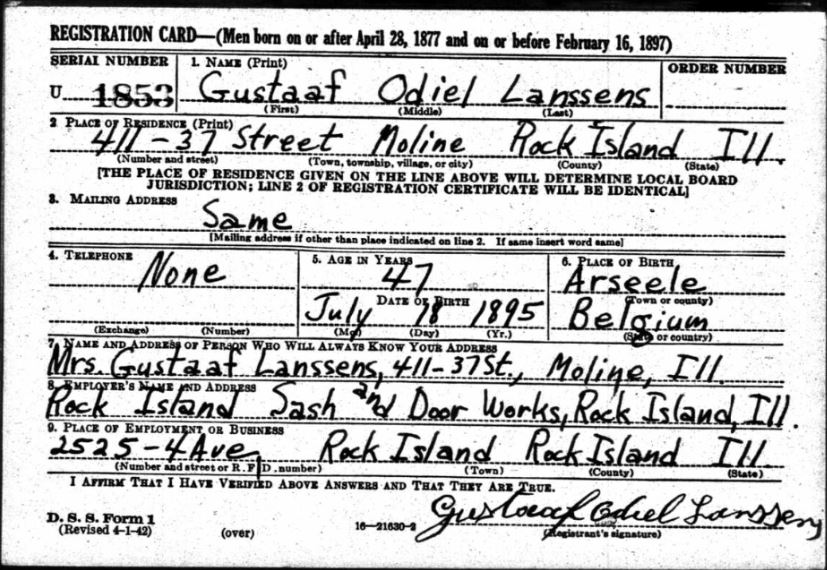 REGISTRATION CARD—(Men born on or after April 28, 1877 and on or before February 16, 1897)
SERIAL NUMBER 1. NAME (Print) ORDER NUMBER
U 1853 Gustaaf Odiel Lanssens
(First) (Middle) (Last)
2 PLACE OF RESIDENCE (Print)
411-37 Street Moline Rock Island Ill.
(Number and street) (Town, township, village, or city) (County) (State)
[THE PLACE OF RESIDENCE GIVEN ON THE LINE ABOVE WILL DETERMINE LOCAL BOARD
JURISDICTION; LINE 2 OF REGISTRATION CERTIFICATE WILL BE IDENTICAL]
3. MAILING ADDRESS
Same
[Mailing address if other than place indicated on line 2. If same insert word same]
4. TELEPHONE 5. AGE IN YEARS 6. PLACE OF BIRTH
None 47 Arseele
DATE OF BIRTH (Town or county)
July 18 1895 Belgium
(Exchange) (Number) (Mo.) (Day) (Yr.) (State or country)
7. NAME AND ADDRESS OF PERSON WHO WILL ALWAYS KNOW YOUR ADDRESS
Mrs. Gustaaf Lanssens, 411-37 St., Moline, Ill.
8. EMPLOYER'S NAME AND ADDRESS
Rock Island Sash and Door Works, Rock Island, Ill.
9. PLACE OF EMPLOYMENT OR BUSINESS
2525-4 Ave Rock Island Rock Island Ill.
(Number and street or R. F. D. number) (Town) (County) (State)
I AFFIRM THAT I HAVE VERIFIED ABOVE ANSWERS AND THAT THEY ARE TRUE.
Gustaaf Odiel Lanssens
D. S. S. Form 1
(Revised 4-1-42) (over) 16—21630-2 (Registrant's signature)